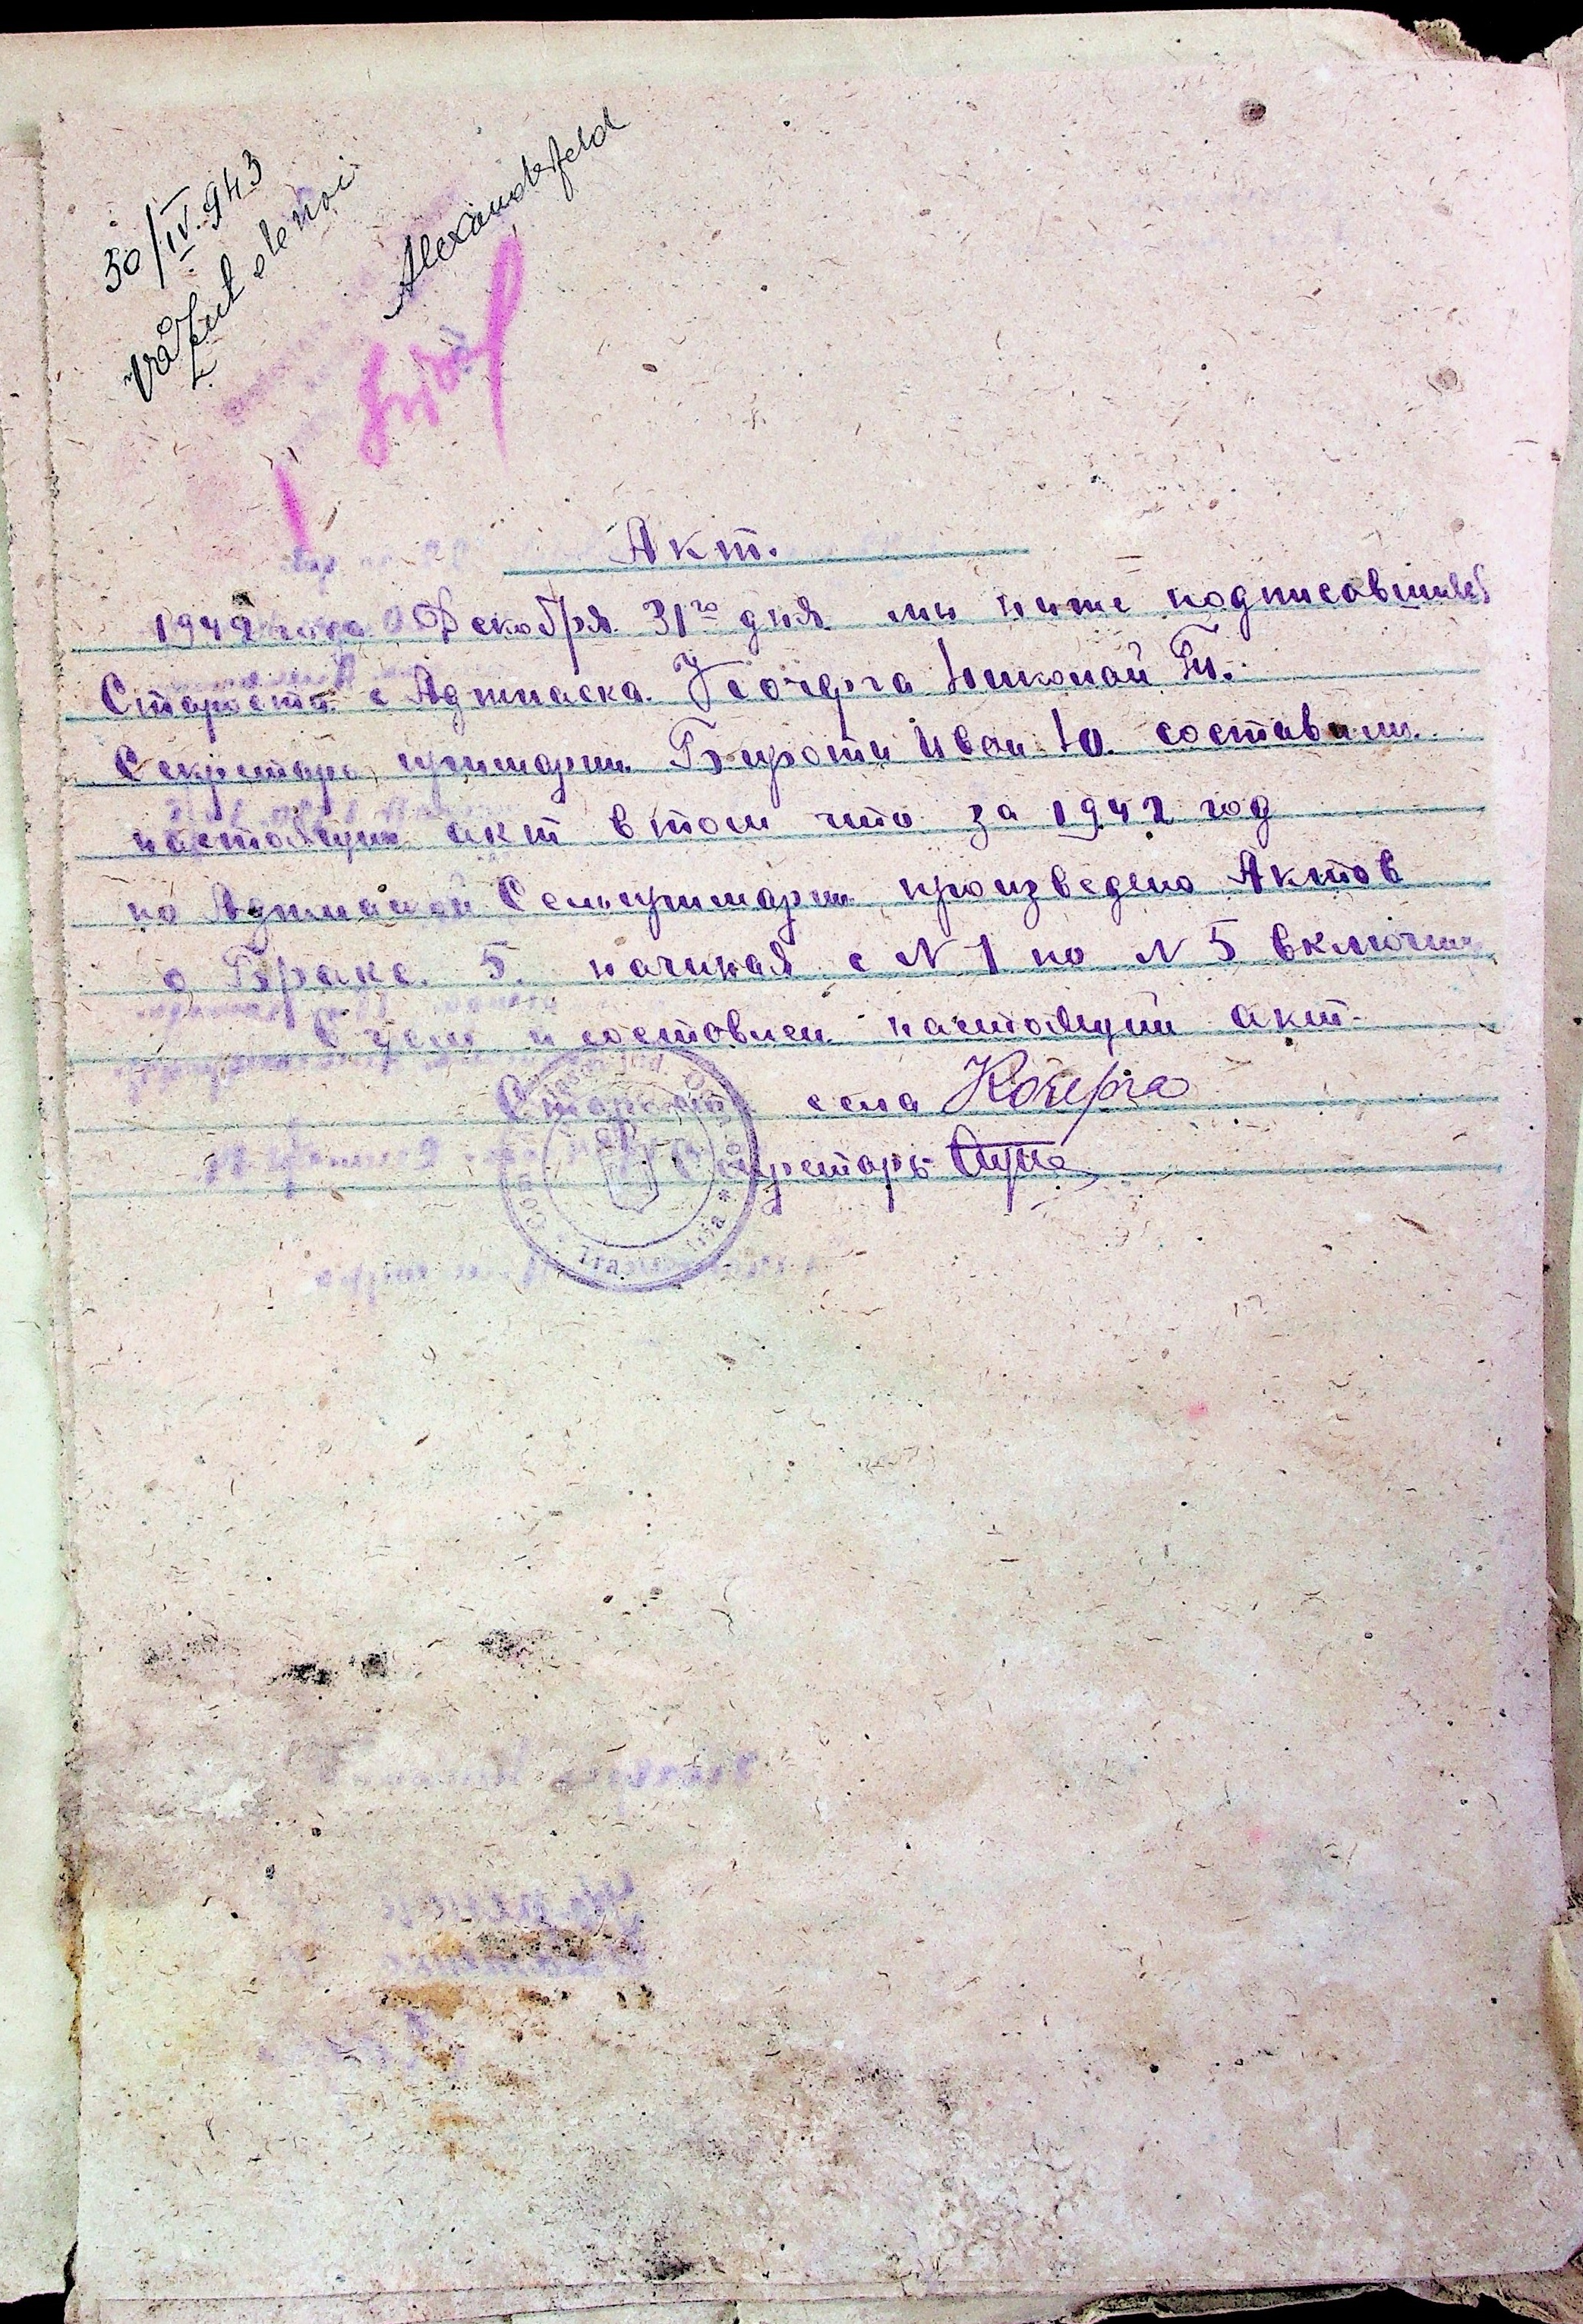 30/IV.943
văzut de noi
Alexanderfeld
Акт.
1942 года Декабря 31го дня мы ниже подписавшиеся
Староста с Аджиаска. Кочерга Николай Гт.
Секретарь примарии Бироти Иван Ю. составили
настоящий акт в том что за 1942 год
по Аджиаской Сельпримарии произведено Актов
о Браке. 5. начиная с N 1 по N 5 включит
О чем и составлен настоящий акт.
Староста села Кочерга
Секретарь